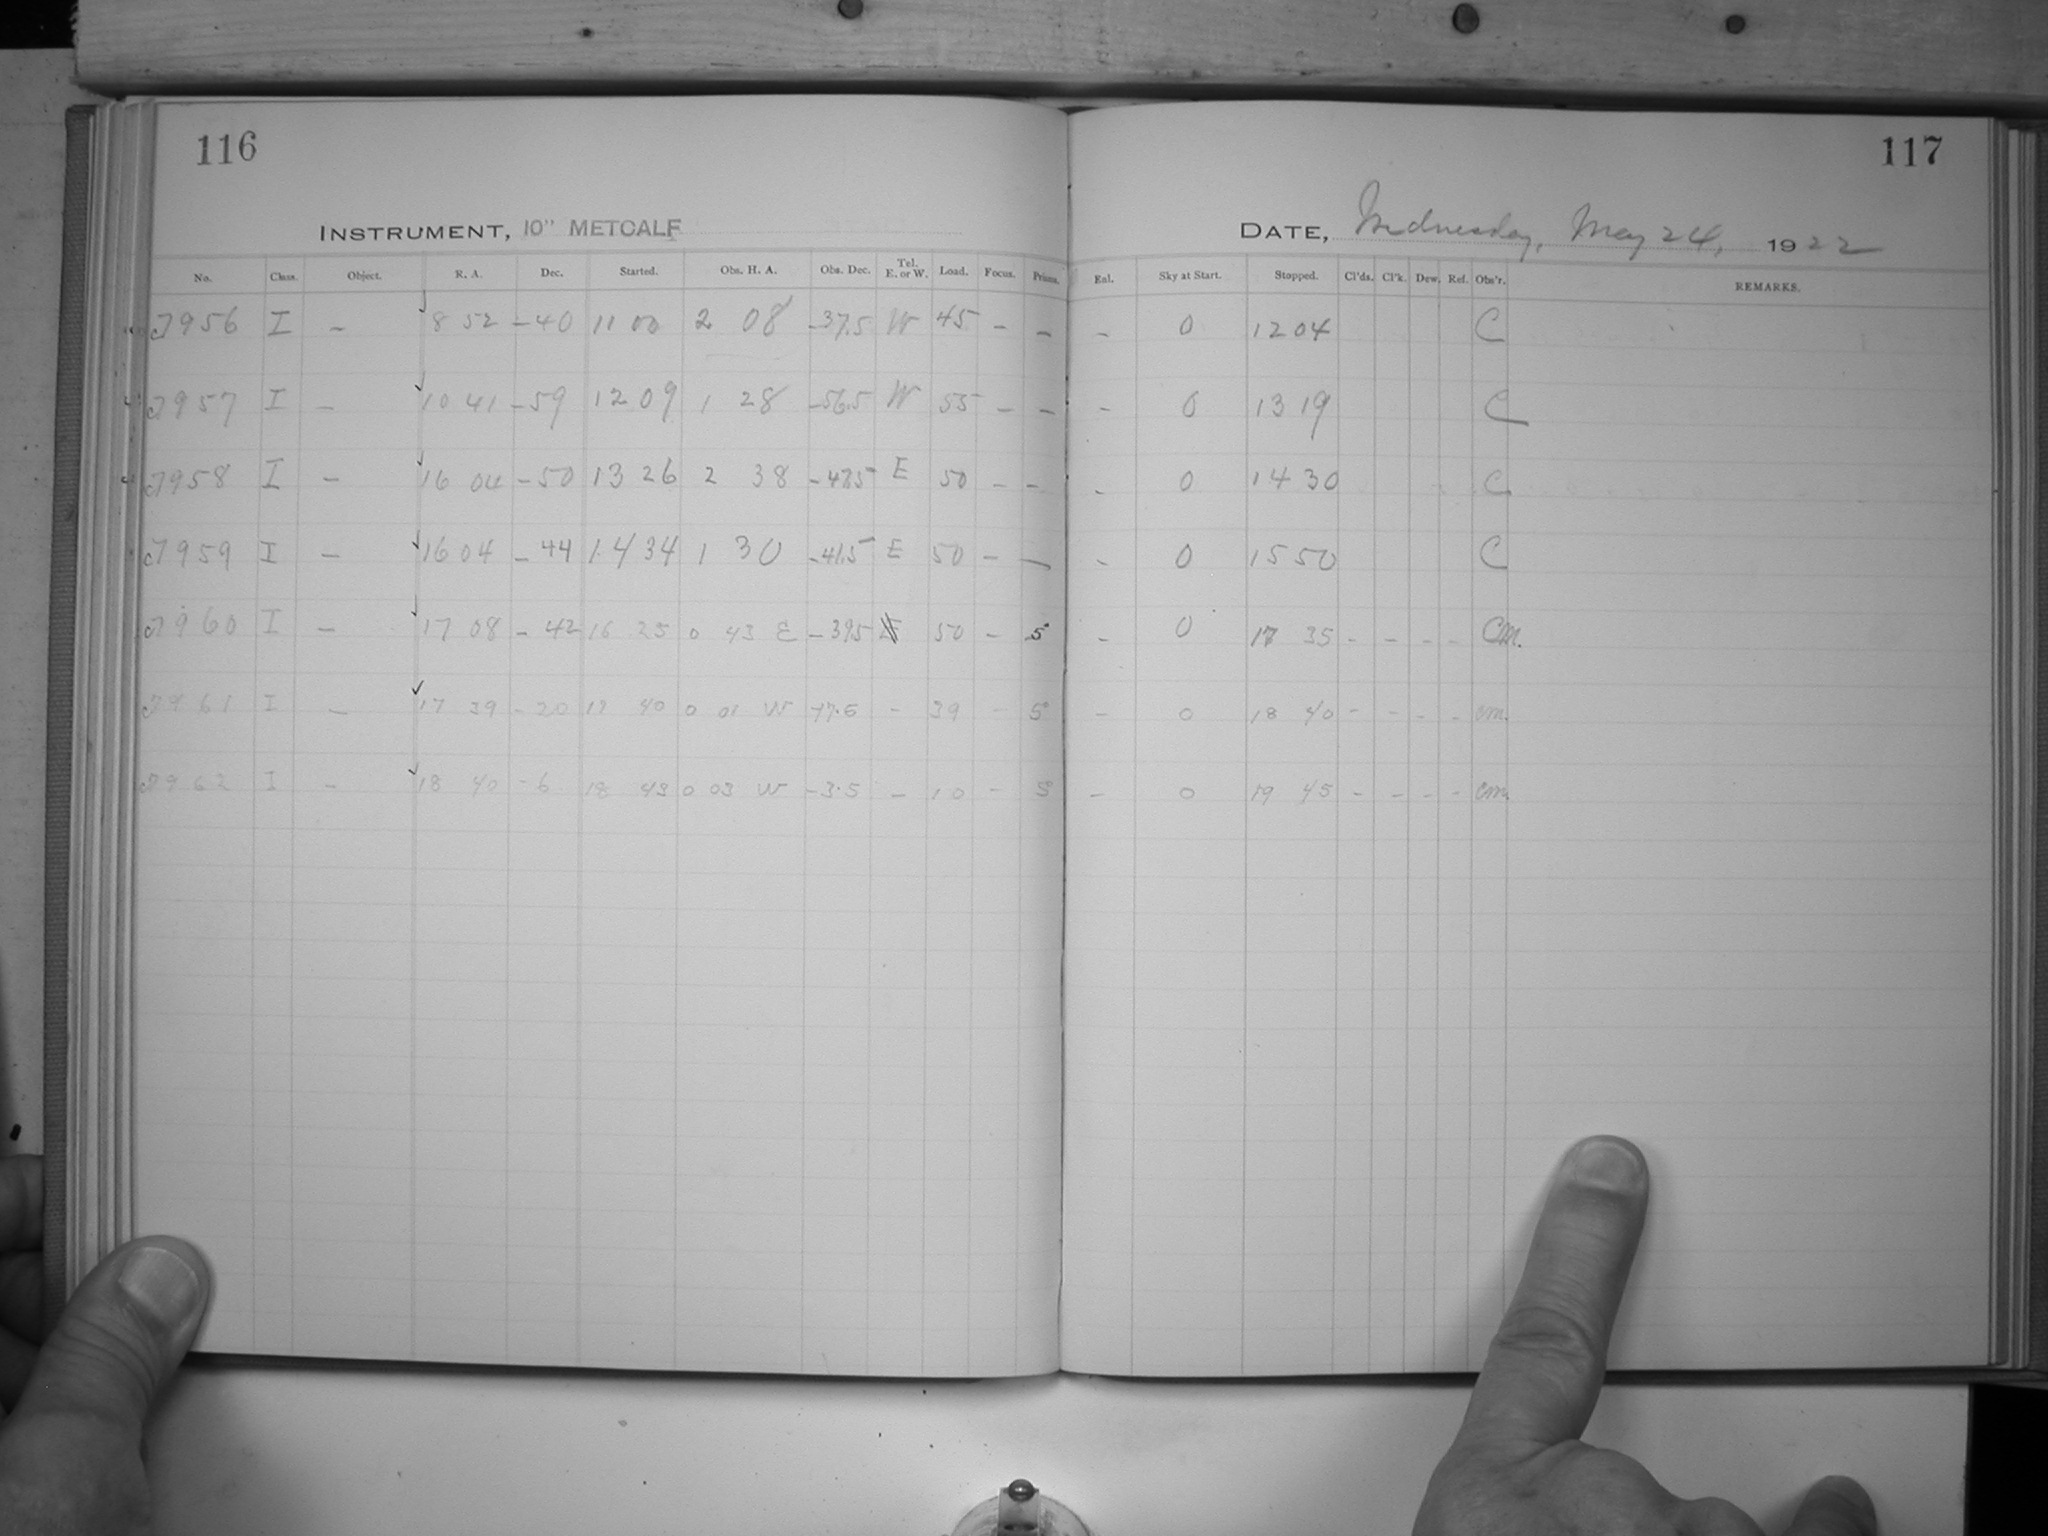 116
117
INSTRUMENT, 10" METCALF
DATE, Wednesday, May 24, 1922
No. Class. Object. R. A. Dec. Started. Obs. H. A. Obs. Dec. Tel. E. or W. Load. Focus. Prism. Enl. Sky at Start. Stopped. Cl'ds. Cl'k. Dew. Ref. Obs'r. REMARKS.
7956 I – 8 52 –40 11 00 2 08 –37.5 W 45 – – – 0 12 04 C
7957 I – 10 41 –59 12 09 1 28 –56.5 W 55 – – – 0 13 19 C
7958 I – 16 04 –50 13 26 2 38 –47.5 E 50 – – – 0 14 30 C
7959 I – 16 04 –44 14 34 1 30 –41.5 E 50 – – – 0 15 50 C
7960 I – 17 08 –42 16 25 0 43 E –39.5 50 – 5 – 0 17 35 – – – – CM.
7961 I – 17 39 –20 17 40 0 01 W 39 – 5 – 0 18 40 – – – – CM.
7962 I – 18 40 –6 18 43 0 03 W –3.5 – 10 – – 0 19 45 – – – – CM.